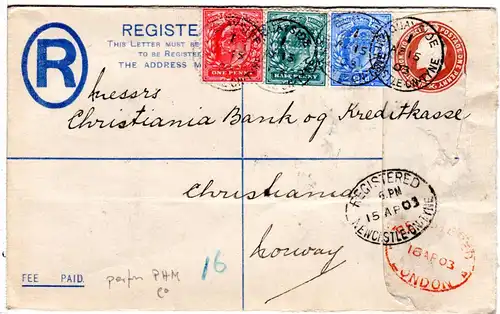 REGISTERE
THIS LETTER MUST BE
TO BE REGISTERE
THE ADDRESS M
R
ONE PENNY
HALF PENNY
Messrs
Christiania Bank og Kreditkasse
Christiania
Norway
REGISTERED
6 PM
15 AP 03
NEWCASTLE-ON-TYNE
16 AP 03
LONDON
FEE PAID.
perfin PHM
Co
16